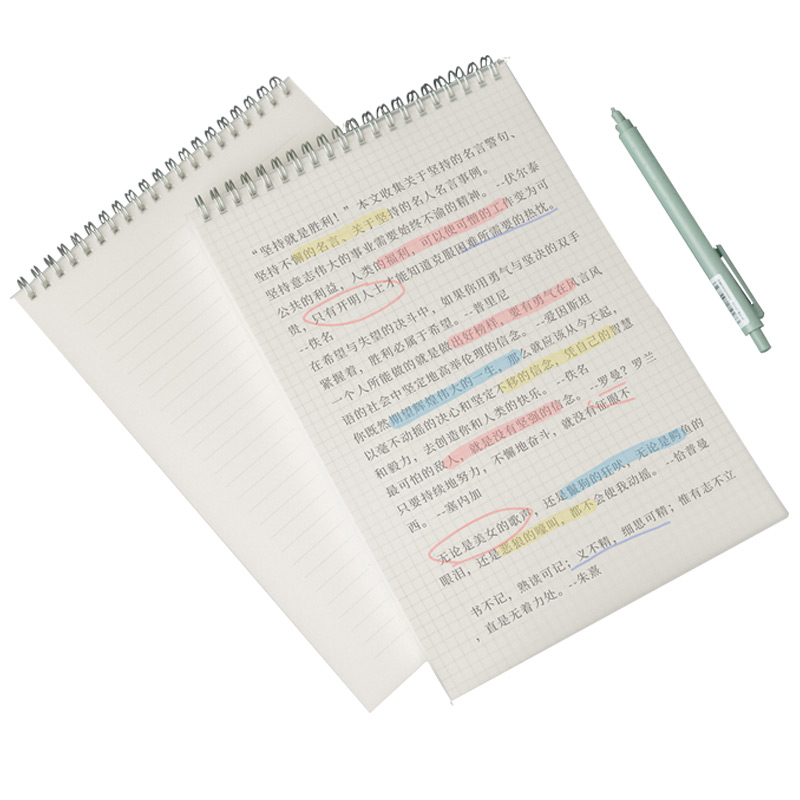 “坚持就是胜利！”本文收集关于坚持的名言警句、
坚持不懈的名言、关于坚持的名人名言事例。
坚持意志伟大的事业需要始终不渝的精神。--伏尔泰
公共的利益，人类的福利，可以使可憎的工作变为可
贵，只有开明人士才能知道克服困难所需要的热忱。
--佚名
在希望与失望的决斗中，如果你用勇气与坚决的双手
紧握着，胜利必属于希望。--普里尼
一个人所能做的就是做出好榜样，要有勇气在风言风
语的社会中坚定地高举伦理的信念。--爱因斯坦
你既然期望辉煌伟大的一生，那么就应该从今天起，
以毫不动摇的决心和坚定不移的信念，凭自己的智慧
和毅力，去创造你和人类的快乐。--佚名
最可怕的敌人，就是没有坚强的信念。--罗曼？罗兰
只要持续地努力，不懈地奋斗，就没有征服不
西。--塞内加
无论是美女的歌声，还是鬣狗的狂吠，无论是鳄鱼的
眼泪，还是恶狼的嚎叫，都不会使我动摇。--恰普曼
书不记，熟读可记；义不精，细思可精；惟有志不立
，直是无着力处。--朱熹